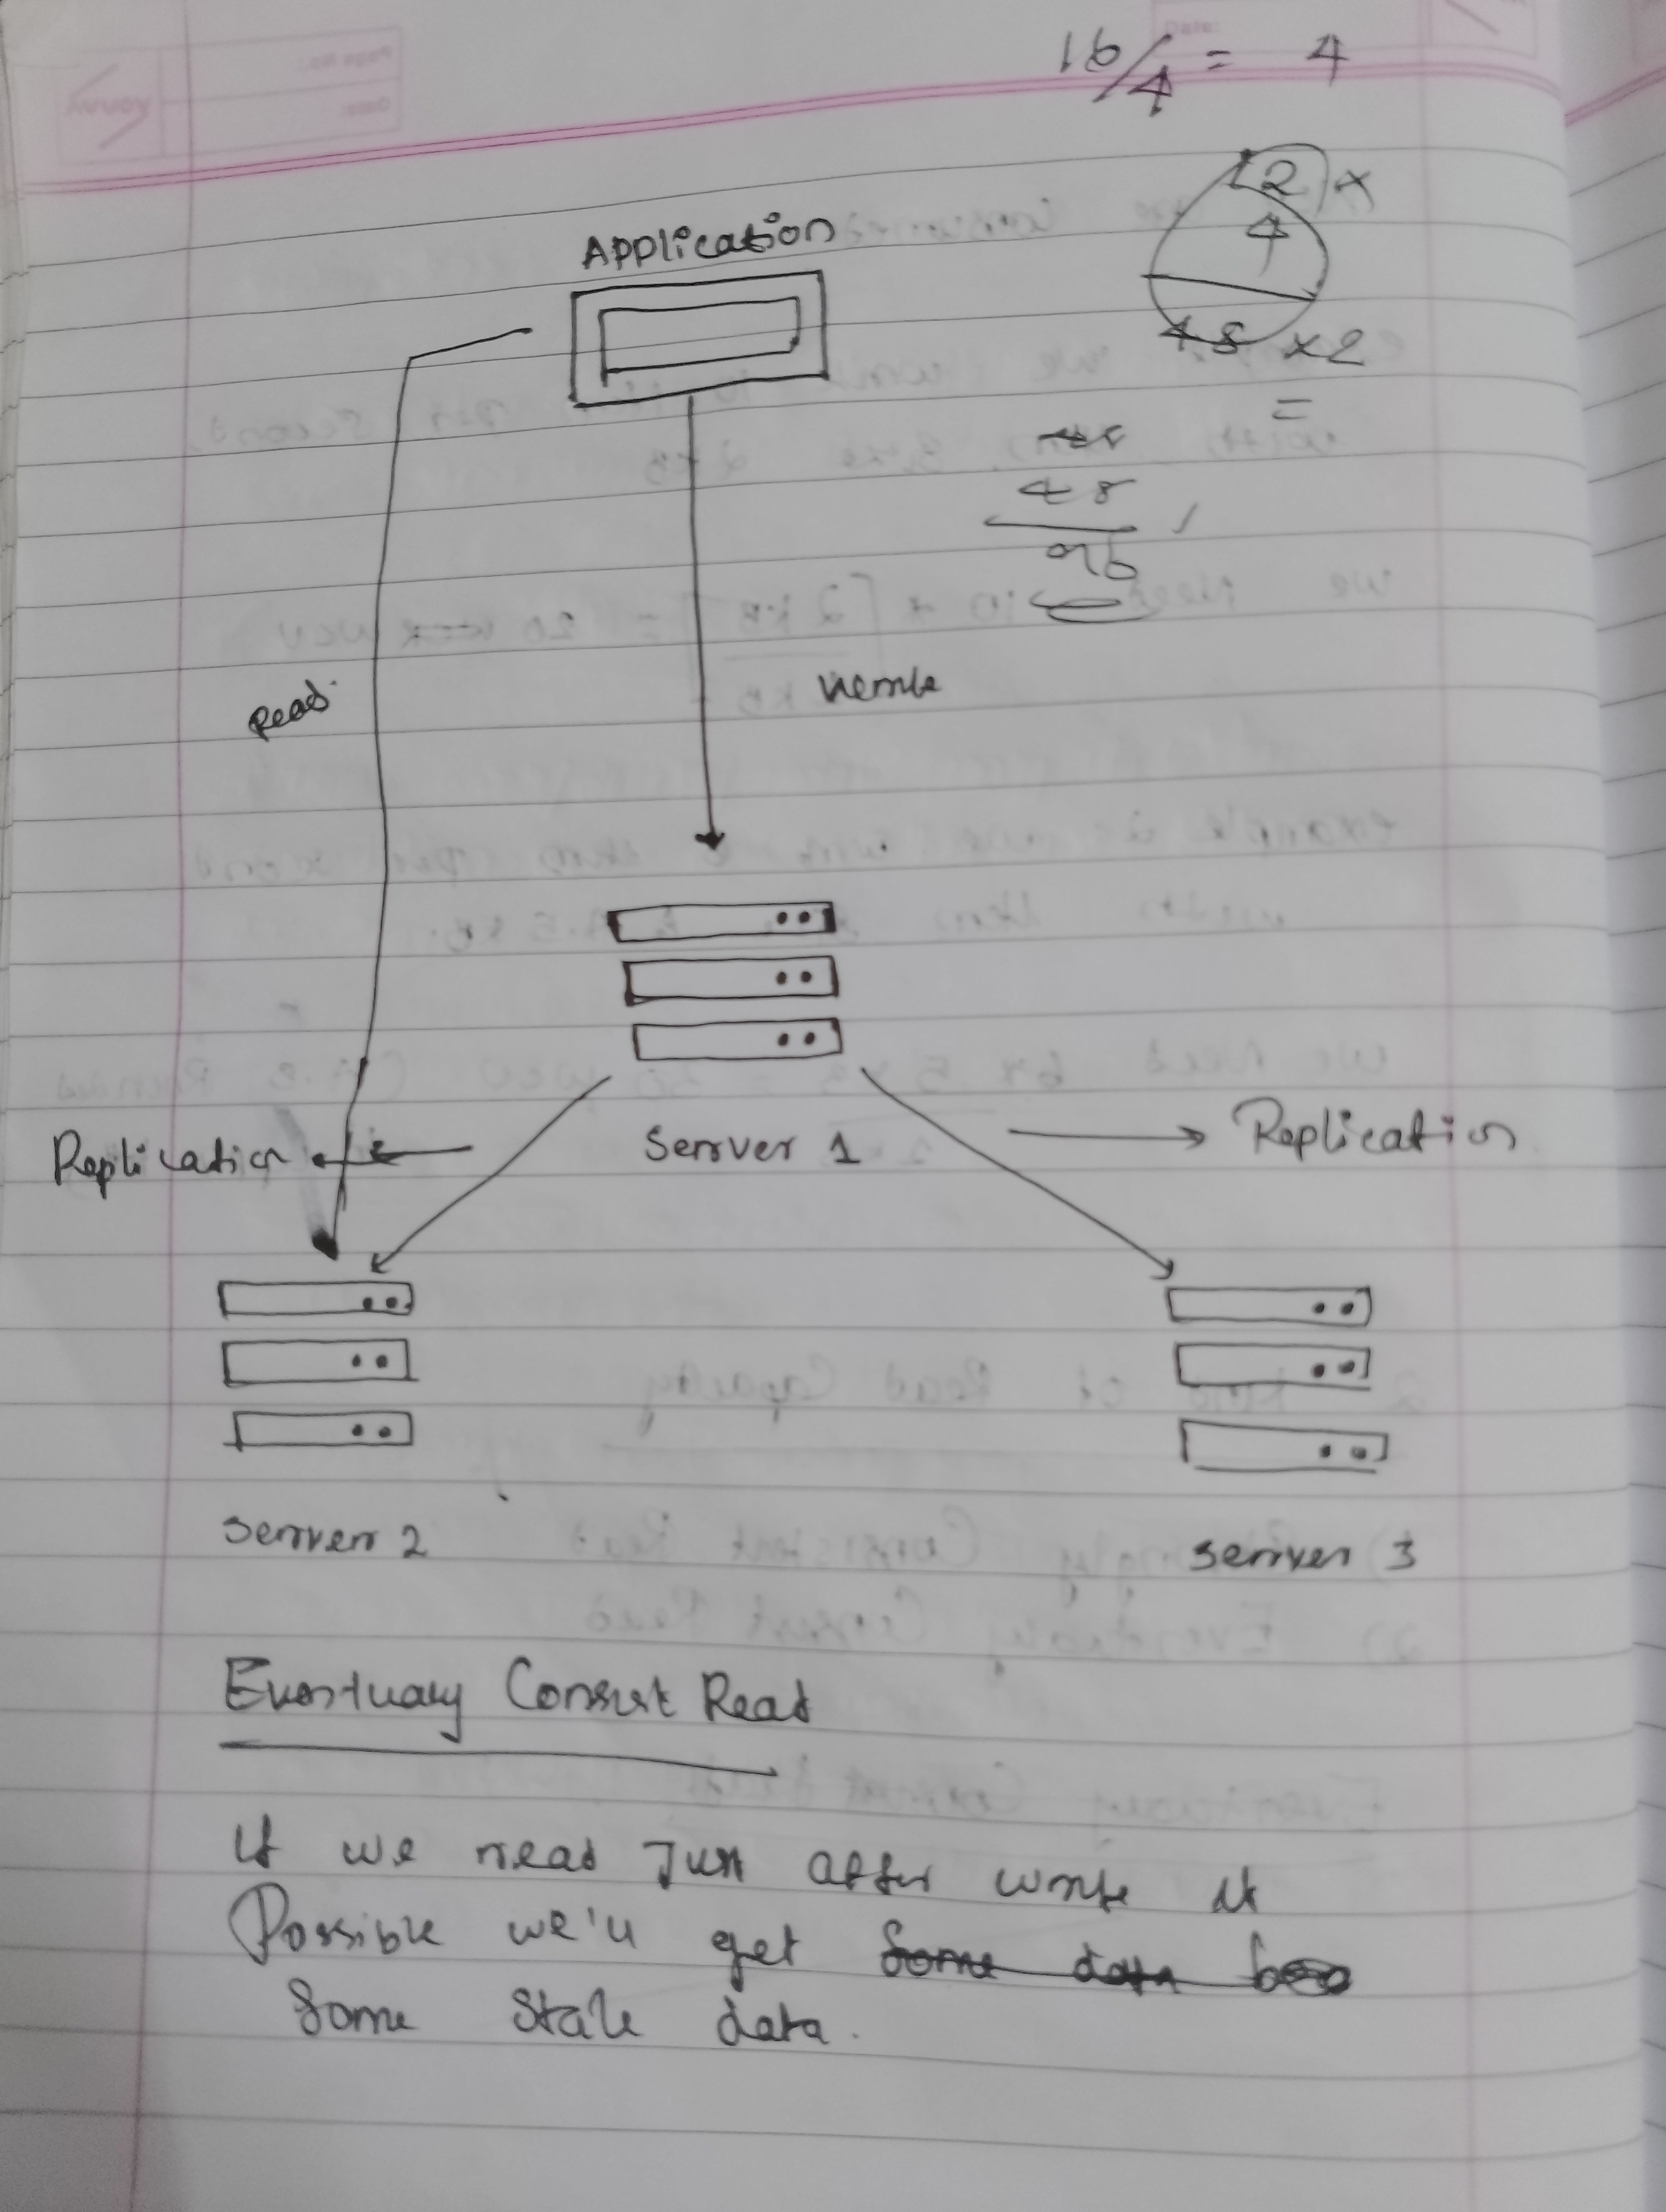 16/4 = 4
12 x
4
48 x2
=
48
96
Application
Read
Write
Replication
Server 1
Replication
Server 2
Server 3
Eventualy Consist Read
If we read Just after write it
Possible we'll get some data
Some stale data.